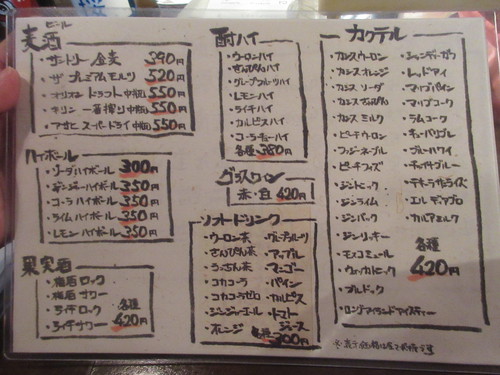 ビール
麦酒
・サントリー 金麦 390円
・ザ プレミアムモルツ 520円
・オリオン ドラフト 中瓶 550円
・キリン 一番搾り 中瓶 550円
・アサヒ スーパードライ 中瓶 550円
ハイボール
・ソーダハイボール 300円
・ジンジャーハイボール 350円
・コーラハイボール 350円
・ライムハイボール 350円
・レモンハイボール 350円
果実酒
・梅酒ロック
・梅酒サワー
・ライチロック
・ライチサワー
各種
420円
酎ハイ
・ウーロンハイ
・さんぴんハイ
・グレープフルーツハイ
・レモンハイ
・ライチハイ
・カルピスハイ
・コーラチューハイ
各種 380円
グラスワイン
赤・白 420円
ソフトドリンク
・ウーロン茶
・さんぴん茶
・コカコーラ
・コカコーラゼロ
・ジンジャーエール
・オレンジ
・グレープフルーツ
・アップル
・マンゴー
・パイン
・カルピス
・トマトジュース
各種 300円
カクテル
・カシスウーロン
・カシスオレンジ
・カシスソーダ
・カシスさんぴん
・カシスミルク
・ピーチウーロン
・ファジーネーブル
・ピーチフィズ
・ジントニック
・ジンライム
・ジンバック
・ジンリッキー
・モスコミュール
・ウォッカトニック
・ブルドック
・ロングアイランドアイスティー
・シャンディーガフ
・レッドアイ
・マリブパイン
・マリブコーク
・ラムコーク
・キューバリブレ
・ブルーハワイ
・テキーラサンライズ
・エルディアブロ
・カルアミルク
各種
420円